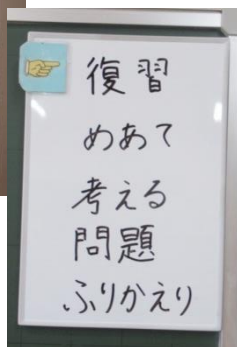 復習
めあて
考える
問題
ふりかえり